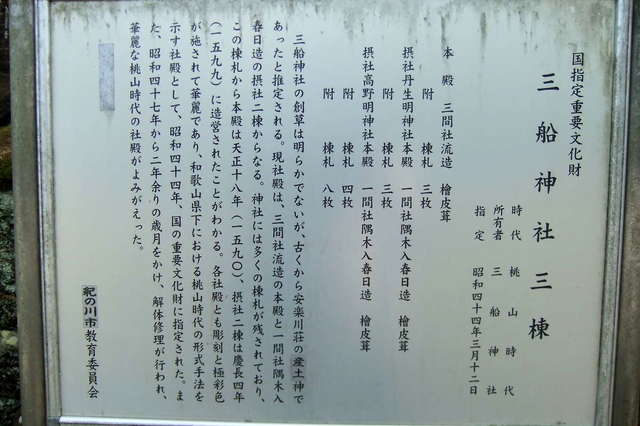 国指定重要文化財
三船神社三棟
時代 桃山時代
所有者 三船神社
指定 昭和四十四年三月十二日
本殿 三間社流造 檜皮葺
附 棟札 三枚
摂社丹生明神社本殿 一間社隅木入春日造 檜皮葺
附 棟札 三枚
摂社高野明神社本殿 一間社隅木入春日造 檜皮葺
附 棟札 四枚
附 棟札 八枚
三船神社の創草は明らかでないが、古くから安楽川荘の産土神で
あったと推定される。現社殿は、三間社流造の本殿と一間社隅木入
春日造の摂社二棟からなる。神社には多くの棟札が残されており、
この棟札から本殿は天正十八年（一五九〇）、摂社二棟は慶長四年
（一五九九）に造営されたことがわかる。各社殿とも彫刻と極彩色
が施されて華麗であり、和歌山県下における桃山時代の形式手法を
示す社殿として、昭和四十四年、国の重要文化財に指定された。ま
た、昭和四十七年から二年余りの歳月をかけ、解体修理が行われ、
華麗な桃山時代の社殿がよみがえった。
紀の川市教育委員会